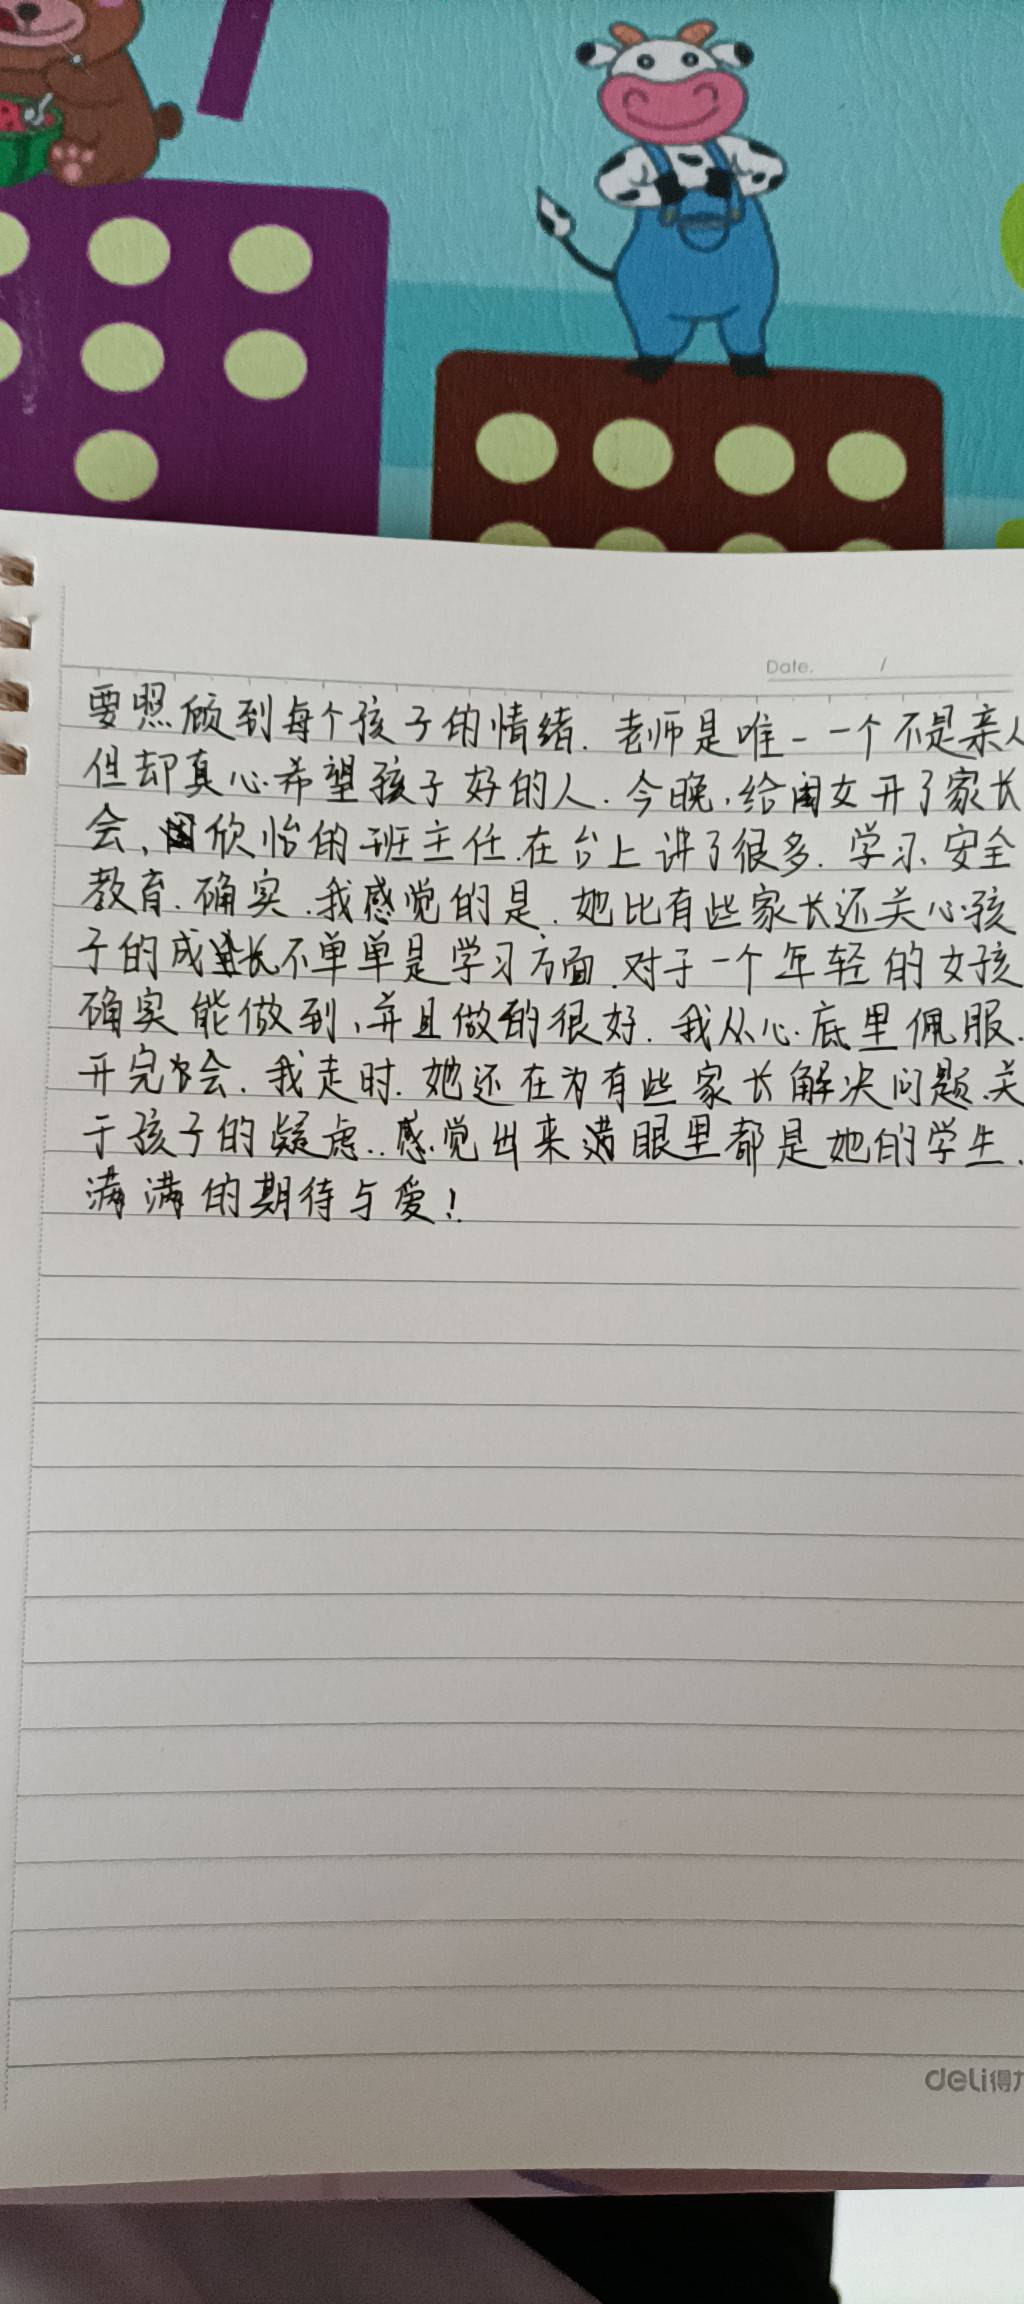 Date. /
要照顾到每个孩子的情绪. 老师是唯一一个不是亲人
但却真心希望孩子好的人. 今晚, 给闺女开了家长
会、欣怡的班主任.在台上讲了很多. 学习、安全
教育. 确实.我感觉的是. 她比有些家长还关心孩
子的成长不单单是学习方面.对于一个年轻的女孩
确实能做到,并且做的很好. 我从心底里佩服.
开完会. 我走时. 她还在为有些家长解决问题.关
于孩子的疑虑..感觉出来满眼里都是她的学生.
满满的期待与爱!
deli得力